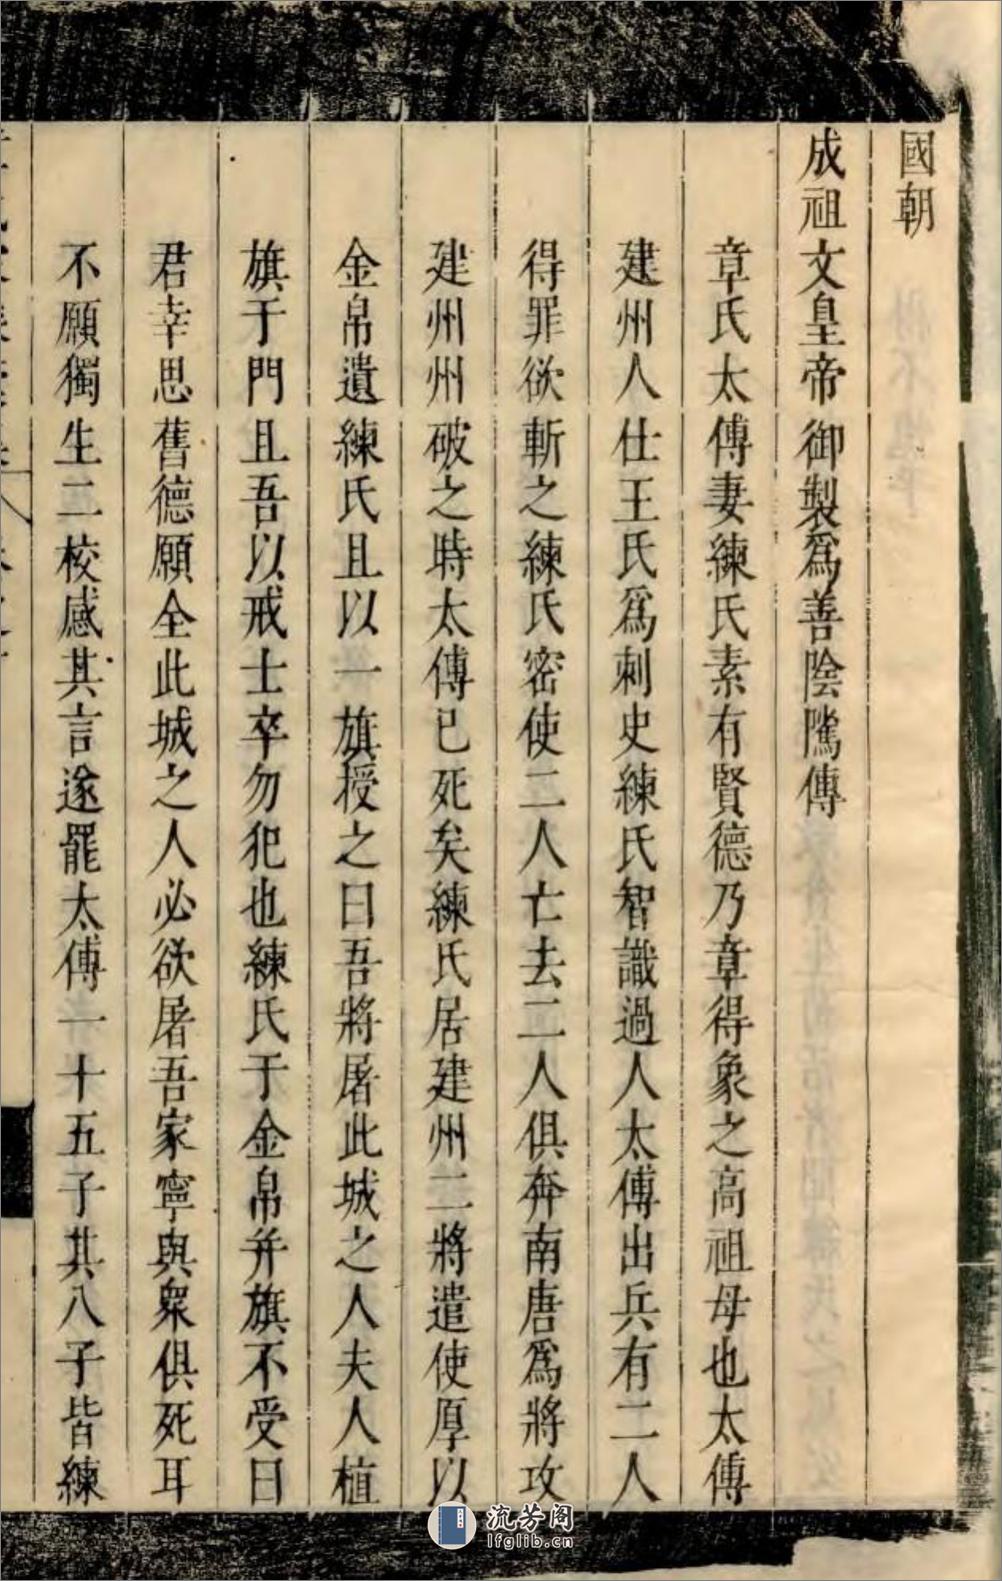 國朝
成祖文皇帝御製爲善陰隲傳
章氏太傅妻練氏素有賢德乃章得象之高祖母也太傅
建州人仕王氏爲刺史練氏智識過人太傅出兵有二人
得罪欲斬之練氏密使二人亡去二人俱奔南唐爲將攻
建州州破之時太傅已死矣練氏居建州二將遣使厚以
金帛遺練氏且以一旗授之曰吾將屠此城之人夫人植
旗于門且吾以戒士卒勿犯也練氏于金帛并旗不受曰
君幸思舊德願全此城之人必欲屠吾家寧與衆俱死耳
不願獨生二校感其言遂罷太傅一十五子其八子皆練
流芳阁
lfglib.cn